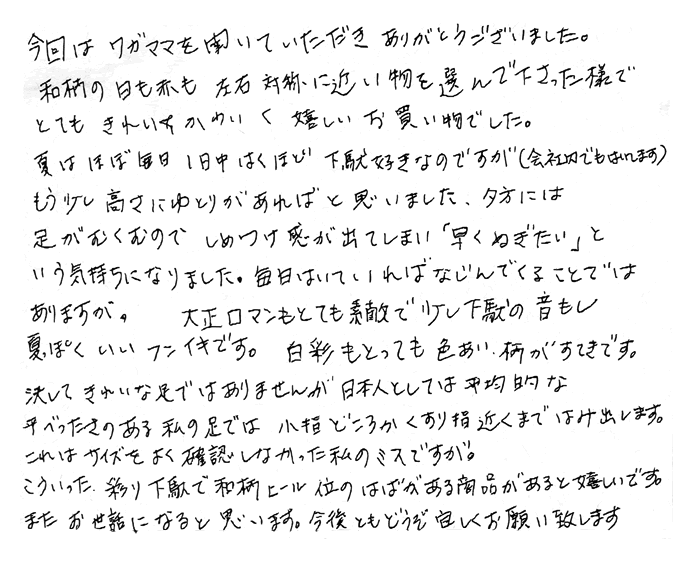 今回は ワガママを聞いていただき ありがとうございました。
和柄の白も赤も 左右対称に近い物を選んで下さった様で
とても きれいでかわいく 嬉しいお買い物でした。
夏はほぼ毎日1日中はくほど 下駄好きなのですが(会社内でもはいてます)
もう少し高さにゆとりがあればと思いました、夕方には
足がむくむので しめつけ感が出てしまい「早くぬぎたい」と
いう気持ちになりました。毎日はいていればなじんでくることでは
ありますが。 大正ロマンもとても素敵で少し下駄の音もし
夏ぽくいいフンイキです。 白彩もとっても色あい・柄がすてきです。
決してきれいな足ではありませんが日本人としては平均的な
平べったさのある私の足では 小指どころかくすり指近くまではみ出します。
これはサイズをよく確認しなかった私のミスですが。
こういった彩り下駄で和柄ヒール位のはばがある商品があると嬉しいです。
またお世話になると思います。今後ともどうぞ宜しくお願い致します